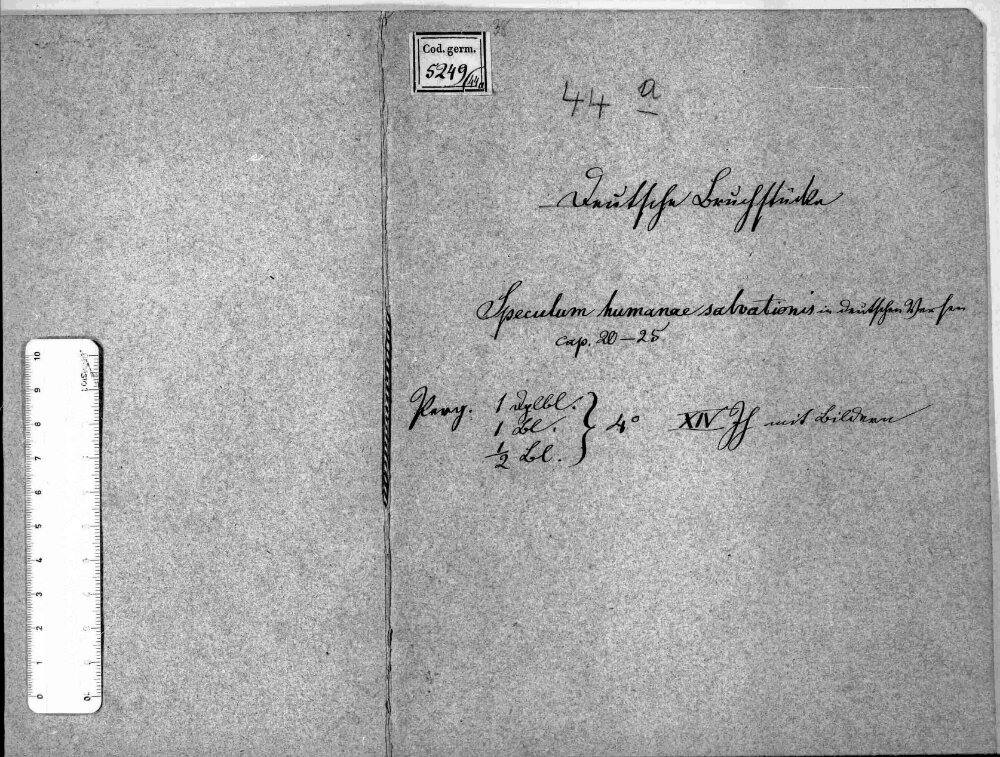 Cod. germ.
5249/44a
44 a
Deutsche Bruchstücke
Speculum humanae salvationis in deutschen Versen
cap. 20–25
Perg. 1 Dplbl.
1 Bl.
1/2 Bl.
4° XIV Jh mit Bildern
10
9
8
7
6
5
4
3
2
1
0